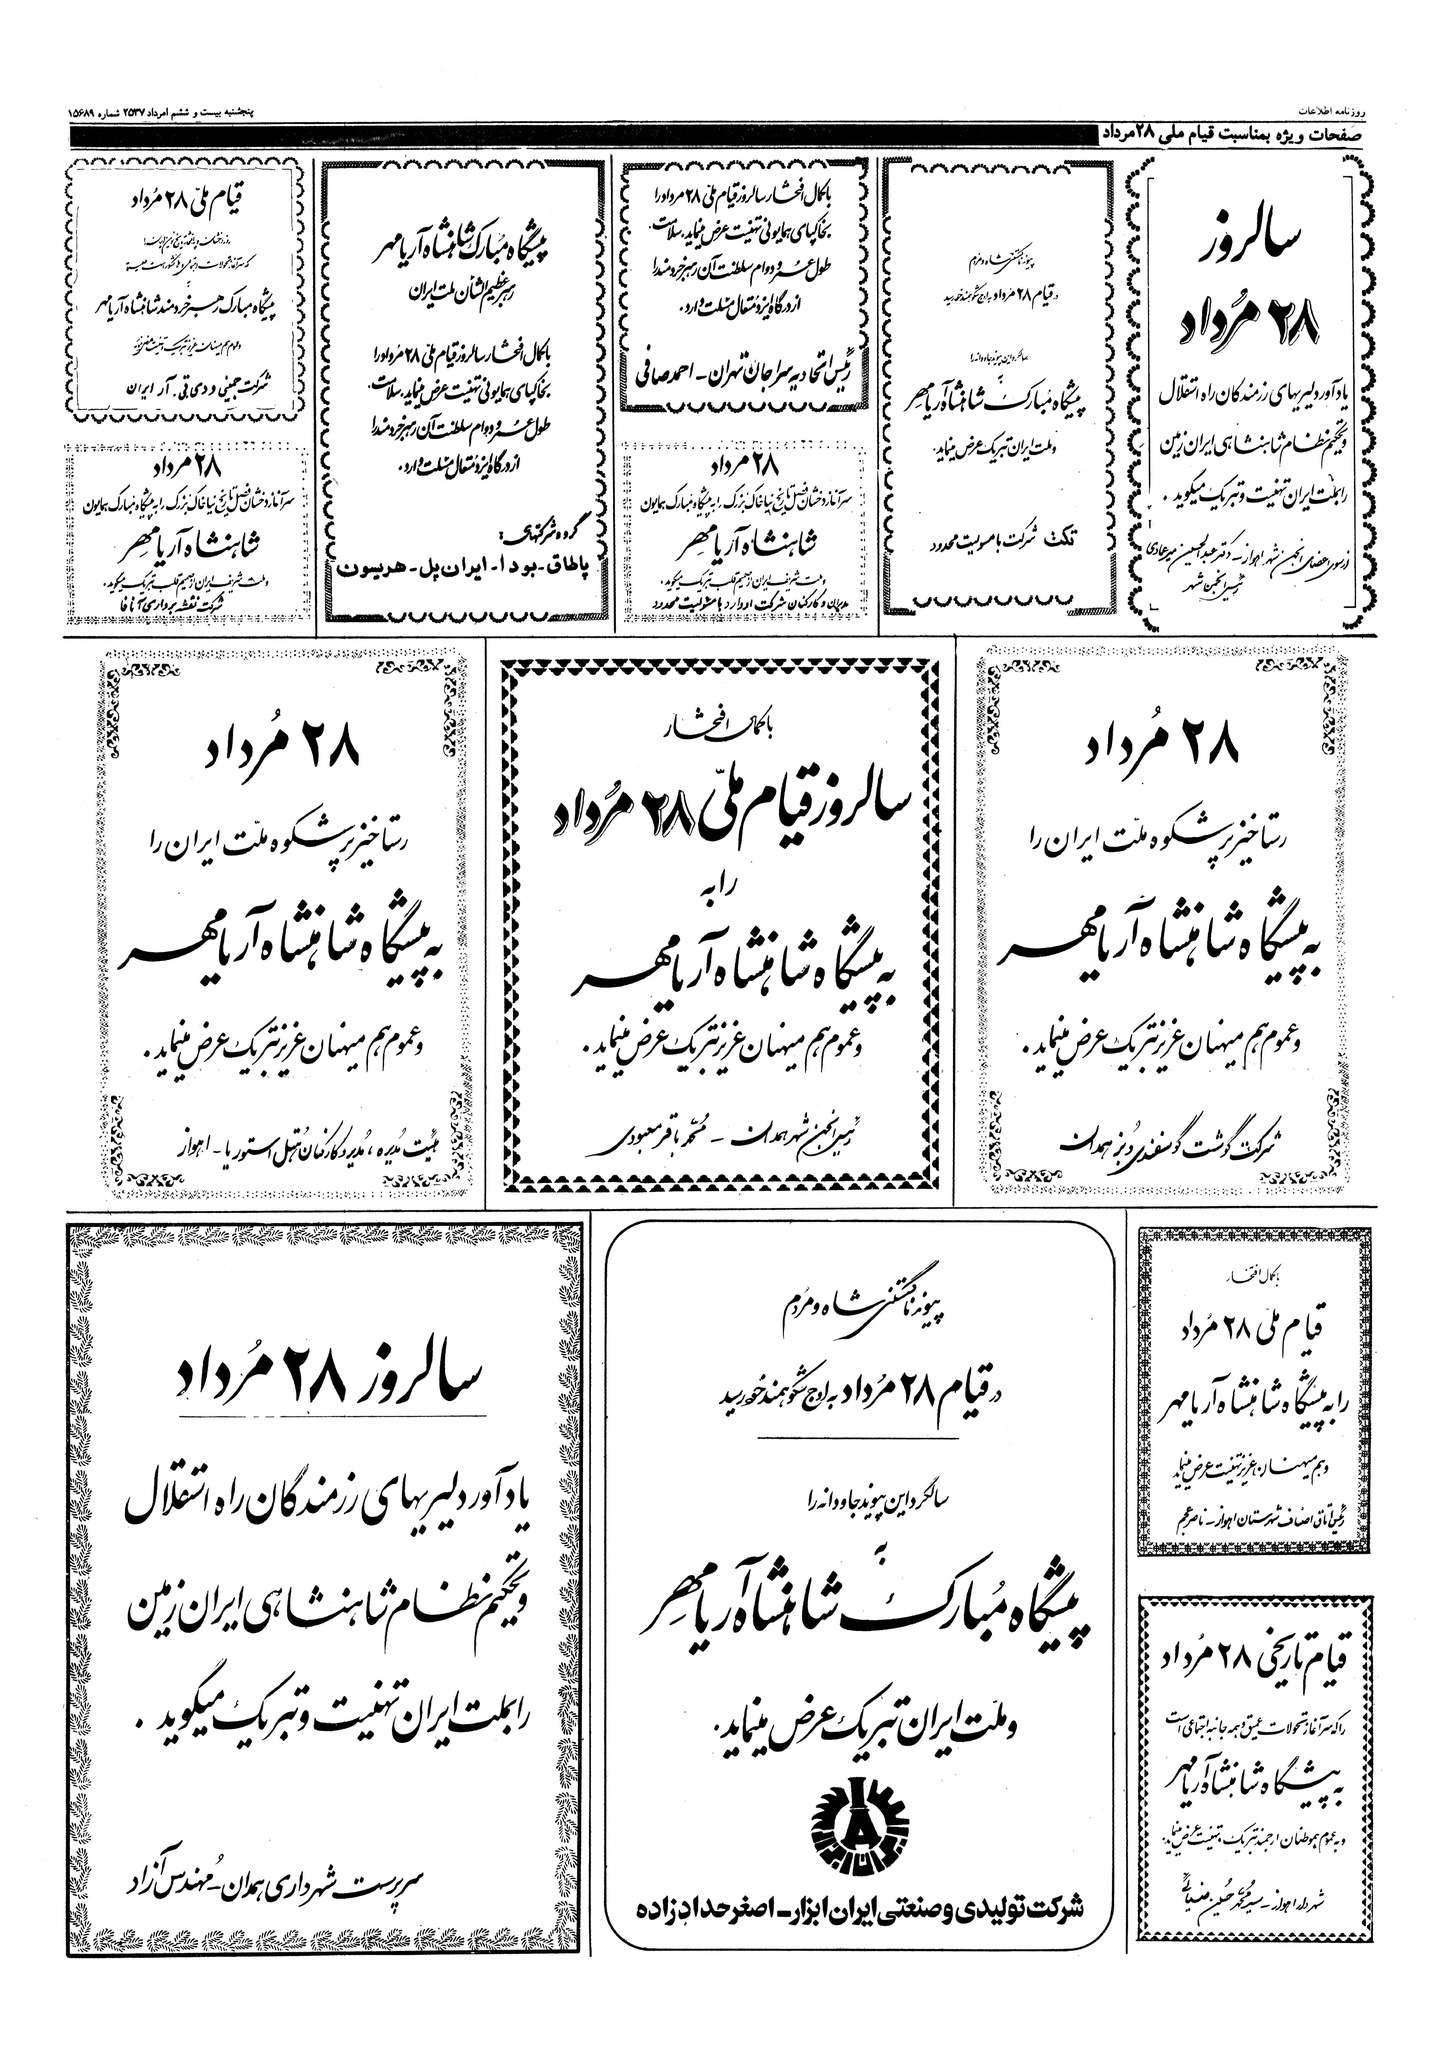 روزنامه اطلاعات
پنجشنبه بیست و ششم امرداد ۲۵۳۷ شماره ۱۵۶۸۹
صفحات ویژه بمناسبت قیام ملی ۲۸ مرداد
سالروز
۲۸ مرداد
یادآور دلیریهای رزمندگان راه استقلال
و تحکیم نظام شاهنشاهی ایران زمین
را بملت ایران تهنیت و تبریک میگوید .
از سوی اعضای انجمن شهر اهواز - دکتر عبدالحسین میرعمادی
رئیس انجمن شهر
پیوند ناگسستنی شاه و مردم
در قیام ۲۸ مرداد به اوج شکوهمند خود رسید
سالگرد این پیوند جاودانه را
به
پیشگاه مبارک شاهنشاه آریامهر
و ملت ایران تبریک عرض مینماید.
تکث شرکت با مسولیت محدود
با کمال افتخار سالروز قیام ملّی ۲۸ مرداد را
بخاکپای همایونی تهنیت عرض مینماید. سلامت
طول عمر و دوام سلطنت آن رهبر خردمند را
از درگاه ایزد متعال مسئلت دارد.
رئیس اتحادیه سراجان تهران - احمد صافی
۲۸ مرداد
سرآغاز درخشان فصل تاریخ نیاخاک بزرگ را به پیشگاه مبارک همایون
شاهنشاه آریامهر
و ملت شریف ایران از صمیم قلب تبریک میگوید.
مدیران و کارکنان شرکت اودارد با مسئولیت محدود
پیشگاه مبارک شاهنشاه آریامهر
رهبر عظیم الشأن ملت ایران
با کمال افتخار سالروز قیام ملّی ۲۸ مرداد را
بخاکپای همایونی تهنیت عرض مینماید. سلامت
طول عمر و دوام سلطنت آن رهبر خردمند را
از درگاه ایزد متعال مسئلت دارد.
گروه شرکتهای:
پاطاق - بود آ - ایران پل - هریسون
قیام ملّی ۲۸ مرداد
پیشگاه مبارک رهبر خردمند شاهنشاه آریامهر
شرکت جمینی و دی تی. آر ایران
۲۸ مرداد
سرآغاز درخشان فصل تاریخ نیاخاک بزرگ را به پیشگاه مبارک همایون
شاهنشاه آریامهر
و ملت شریف ایران از صمیم قلب تبریک میگوید.
شرکت نقشه برداری آتافا
۲۸ مرداد
رستاخیز پرشکوه ملّت ایران را
به پیشگاه شاهنشاه آریامهر
و عموم هم میهنان عزیز تبریک عرض مینماید .
شرکت گوشت گوسفندی و بز همدان
با کمال افتخار
سالروز قیام ملّی ۲۸ مرداد
را به
به پیشگاه شاهنشاه آریامهر
و عموم هم میهنان عزیز تبریک عرض مینماید .
رئیس انجمن شهر همدان - محمد باقر معبودی
۲۸ مرداد
رستاخیز پرشکوه ملّت ایران را
به پیشگاه شاهنشاه آریامهر
و عموم هم میهنان عزیز تبریک عرض مینماید .
هیئت مدیره ، مدیر و کارکنان هتل استوریا - اهواز
با کمال افتخار
قیام ملّی ۲۸ مرداد
را به پیشگاه شاهنشاه آریامهر
و هم میهنان عزیز تهنیت عرض مینماید
رئیس اتاق اصناف شهرستان اهواز - ناصر عجم
قیام تاریخی ۲۸ مرداد
را که سرآغاز تحولات عمیق و همه جانبه اجتماعی است
به پیشگاه شاهنشاه آریامهر
و به عموم هموطنان ارجمند تبریک و تهنیت عرض مینماید.
شهردار اهواز - سید محمد حسین ضیائی
پیوند ناگسستنی شاه و مردم
در قیام ۲۸ مرداد به اوج شکوهمند خود رسید
سالگرد این پیوند جاودانه را
به
پیشگاه مبارک شاهنشاه آریامهر
و ملّت ایران تبریک عرض مینماید.
ایران ابزار
شرکت تولیدی و صنعتی ایران ابزار - اصغر حدادزاده
سالروز ۲۸ مرداد
یادآور دلیریهای رزمندگان راه استقلال
و تحکیم نظام شاهنشاهی ایران زمین
را بملت ایران تهنیت و تبریک میگوید .
سرپرست شهرداری همدان - مهندس آزاد